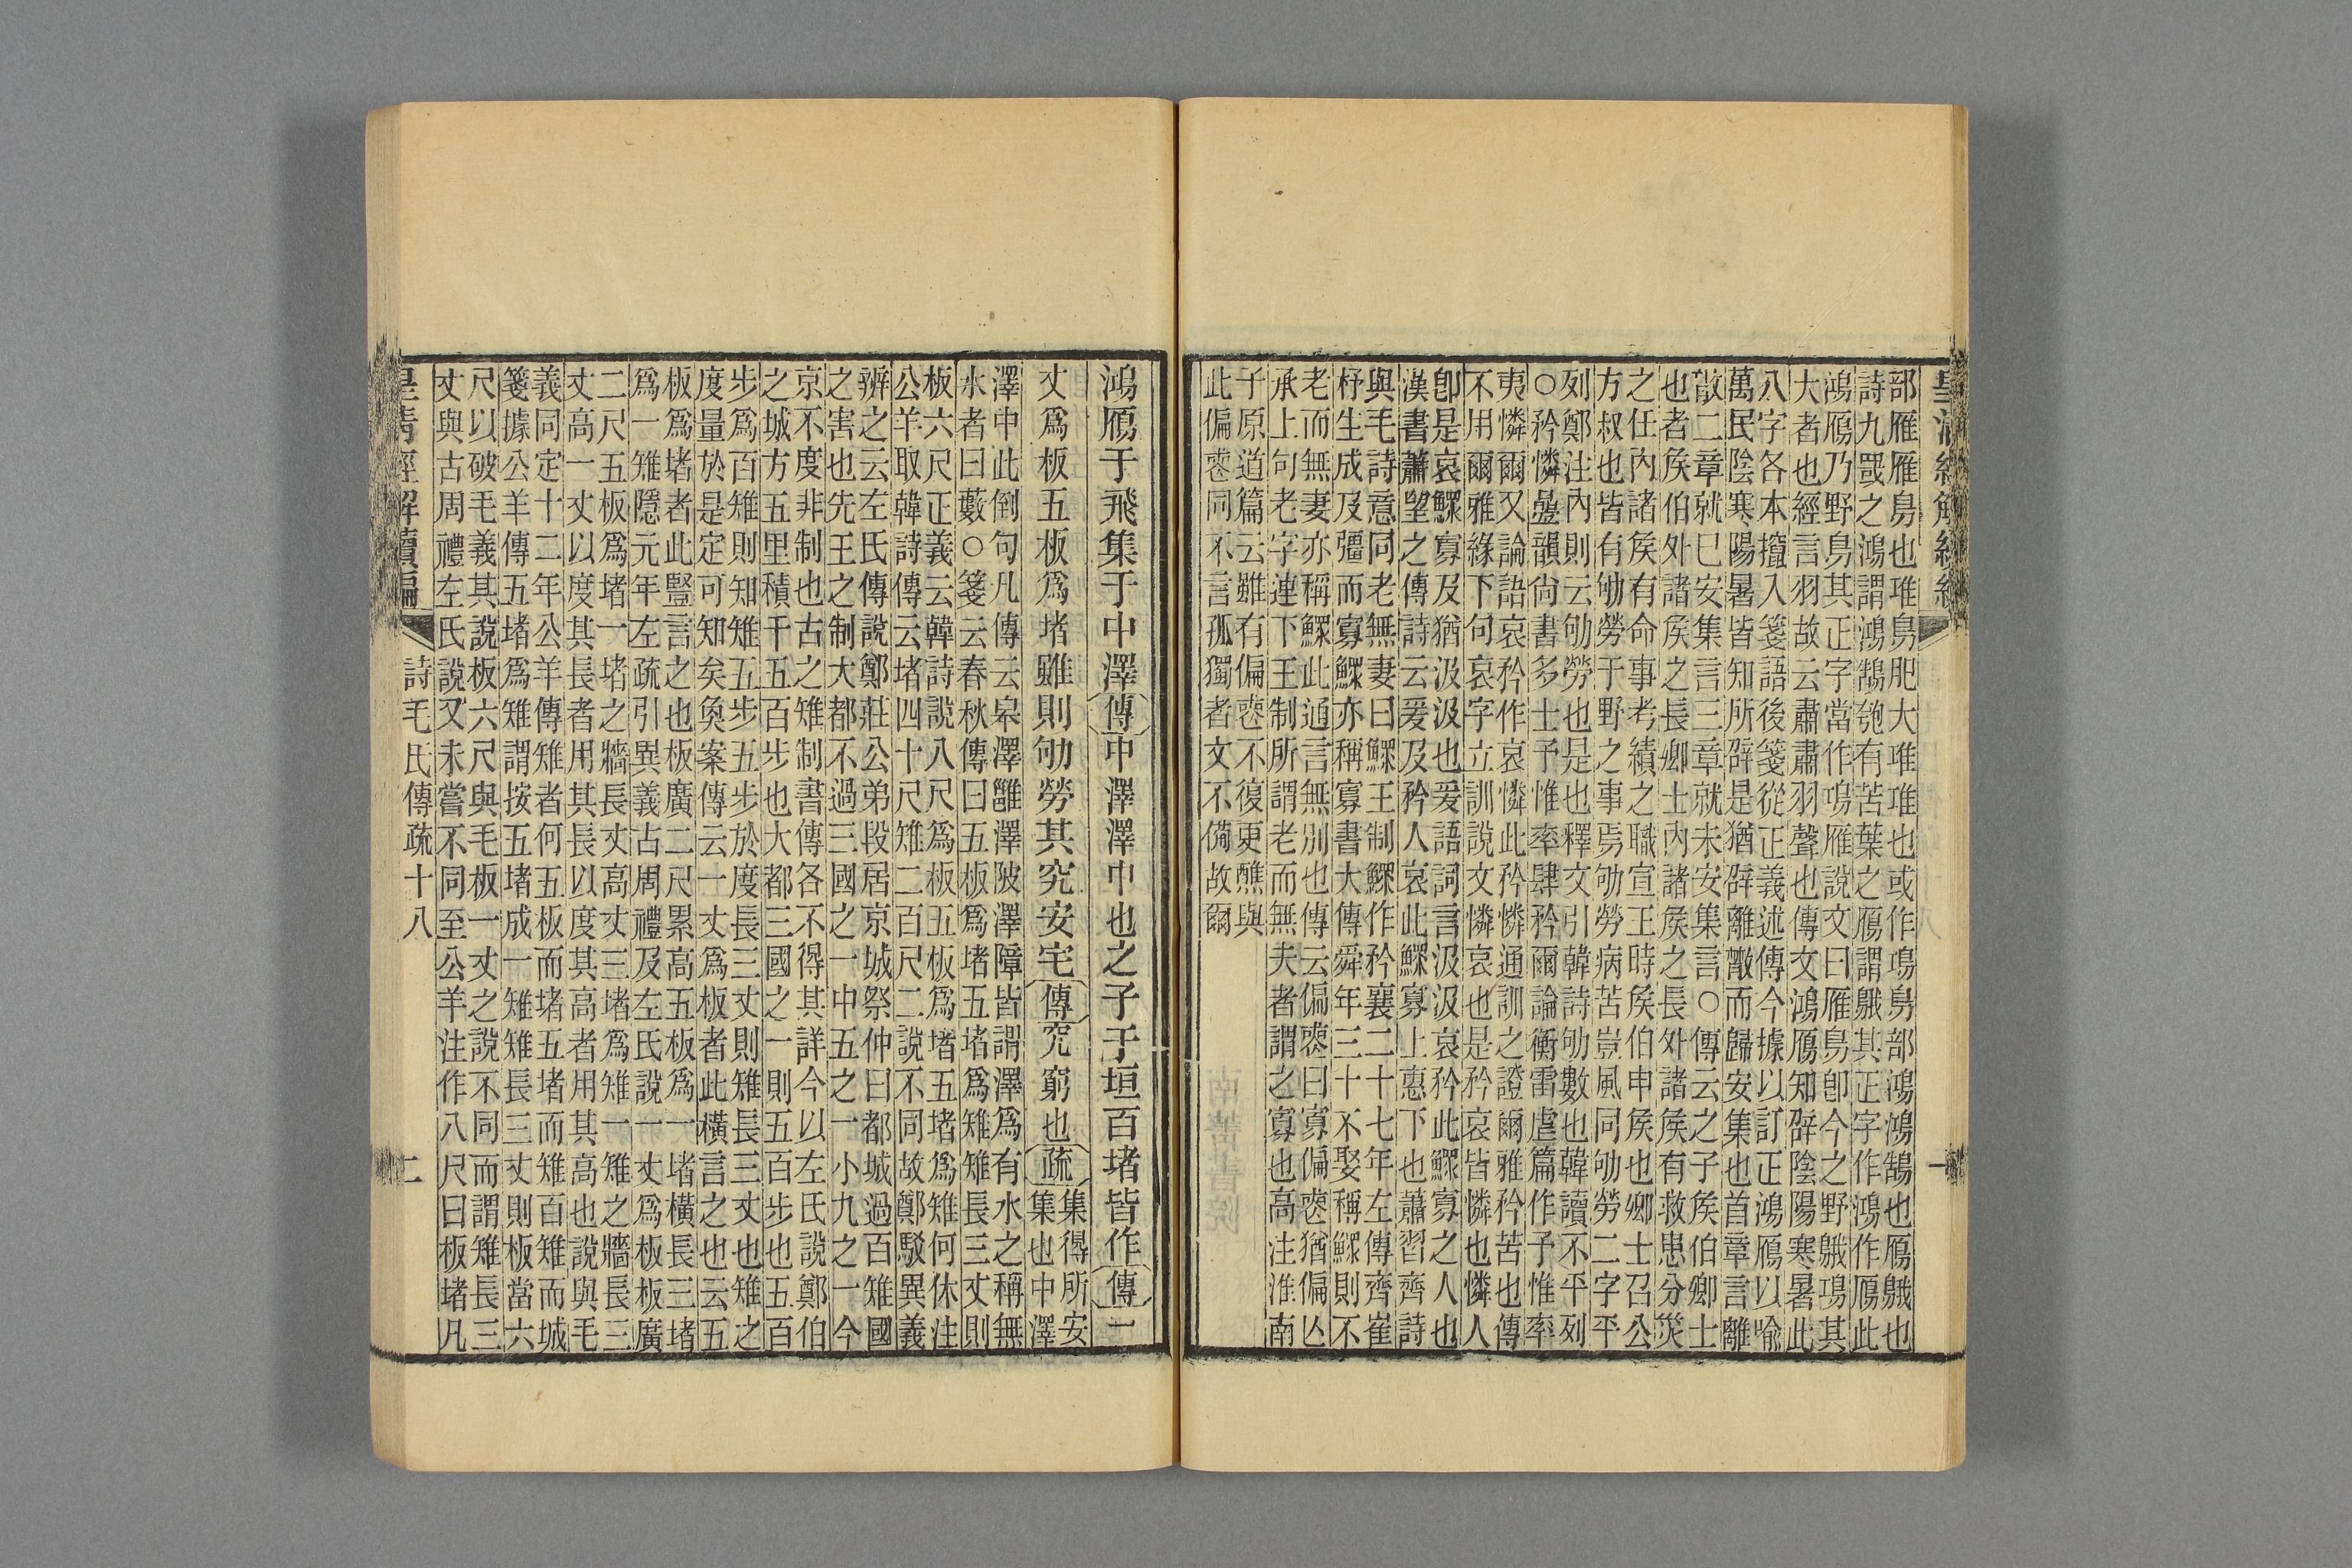 皇清經解續編
一
部雁雁鳥也琟鳥肥大琟琟也或作鳿鳥部鴻鴻鵠也鴈䳘也
詩九罭之鴻謂鴻鵠匏有苦葉之鴈謂䳘其正字作鴻作鴈此
鴻鴈乃野鳥其正字當作鳿雁說文曰雁鳥卽今之野䳘鳿其
大者也經言羽故云肅肅羽聲也傳文鴻鴈知辟陰陽寒暑此
八字各本攛入箋語後箋從正義述傳今據以訂正鴻鴈以喩
萬民陰寒陽暑皆知所辟是猶辟離散而歸安集也首章言離
散二章就已安集言三章就未安集言○傳云之子矦伯卿士
也者矦伯外諸矦之長卿士內諸矦之長外諸矦有救患分災
之任內諸矦有命事考績之職宣王時矦伯申矦也卿士召公
方叔也皆有劬勞于野之事焉劬勞病苦豈風同劬勞二字平
列鄭注內則云劬勞也是也釋文引韓詩劬數也韓讀不平列
○矜憐曡韻尙書多士予惟率肆矜爾論衡雷虛篇作予惟率
夷憐爾又論語哀矜作哀憐此矜憐通訓之證爾雅矜苦也傳
不用爾雅緣下句哀字立訓說文憐哀也是矜哀皆憐也憐人
卽是哀鰥寡及猶汲汲也爰語詞言汲汲哀矜此鰥寡之人也
漢書蕭望之傳詩云爰及矜人哀此鰥寡上惠下也蕭習齊詩
與毛詩意同老無妻曰鰥王制鰥作矜襄二十七年左傳齊崔
杼生成及彊而寡鰥亦稱寡書大傳舜年三十不娶稱鰥則不
老而無妻亦稱鰥此通言無別也傳云偏喪曰寡偏喪猶偏亾
承上句老字連下王制所謂老而無夫者謂之寡也高注淮南
子原道篇云雖有偏喪不復更醮與
此偏喪同不言孤獨者文不備故爾
鴻鴈于飛集于中澤傳中澤澤中也之子于垣百堵皆作傳一
丈爲板五板爲堵雖則劬勞其究安宅傳究窮也疏集得所安
集也中澤
澤中此倒句凡傳云皋澤雝澤陂澤障皆謂澤爲有水之稱無
水者曰藪○箋云春秋傳曰五板爲堵五堵爲雉雉長三丈則
板六尺正義云韓詩說八尺爲板五板爲堵五堵爲雉何休注
公羊取韓詩傳云堵四十尺雉二百尺二說不同故鄭駁異義
辨之云左氏傳說鄭莊公弟段居京城祭仲曰都城過百雉國
之害也先王之制大都不過三國之一中五之一小九之一今
京不度非制也古之雉制書傳各不得其詳今以左氏說鄭伯
之城方五里積千五百步也大都三國之一則五百步也五百
步爲百雉則知雉五步五步於度長三丈則雉長三丈也雉之
度量於是定可知矣奐案傳云一丈爲板者此橫言之也云五
板爲堵者此豎言之也板廣二尺累高五板爲一堵橫長三堵
爲一雉隱元年左疏引異義古周禮及左氏說一丈爲板板廣
二尺五板爲堵一堵之牆長丈高丈三堵爲雉一雉之牆長三
丈高一丈以度其長者用其長以度其高者用其高也說與毛
義同定十二年公羊傳雉者何五板而堵五堵而雉百雉而城
箋據公羊傳五堵爲雉謂按五堵成一雉雉長三丈則板當六
尺以破毛義其說板六尺與毛板一丈之說不同而謂雉長三
丈與古周禮左氏說又未嘗不同至公羊注作八尺曰板堵凡
皇清經解續編
詩毛氏傳疏十八
二